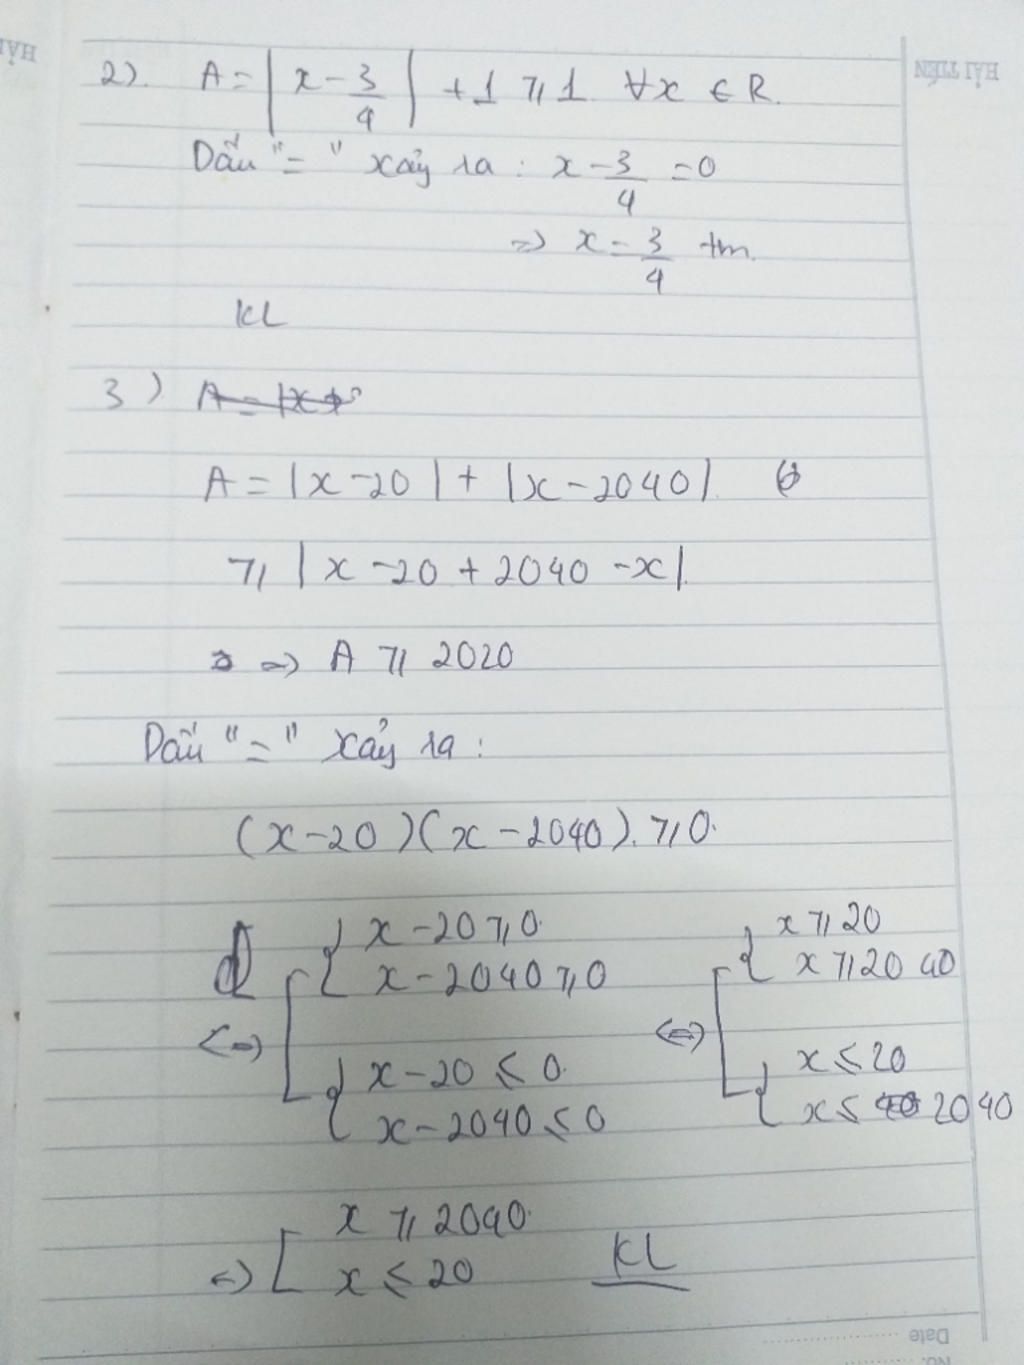 HẢI TIẾN
2). A = | x - 3/4 | + 1 ⩾ 1 ∀x ∈ R.
Dấu "=" xảy ra : x - 3/4 = 0
=> x = 3/4 tm.
KL
3)
A = |x - 20| + |x - 2040|.
⩾ | x - 20 + 2040 - x |.
=> A ⩾ 2020
Dấu "=" xảy ra :
(x - 20)(x - 2040). ⩾ 0.
<=> [ { x - 20 ⩾ 0. x - 2040 ⩾ 0 { x - 20 ⩽ 0. x - 2040 ⩽ 0 <=> [ { x ⩾ 20 x ⩾ 2040 { x ⩽ 20 x ⩽ 2040
<=> [ x ⩾ 2040. x ⩽ 20 KL
Date
No.